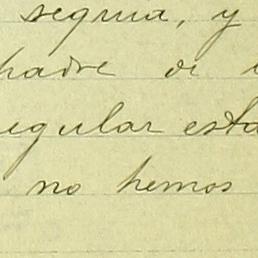 seguia, y
padre di
egular esta
no hemos